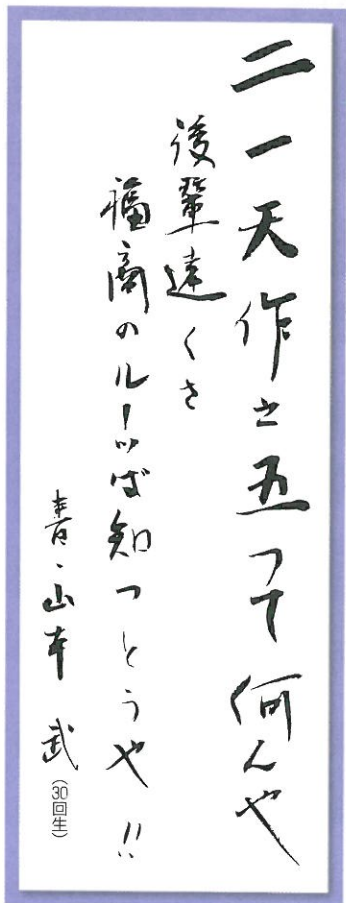 二一天作之五って何んや
後輩達くさ
福商のルーツば知っとうや!!
書・山本 武(30回生)